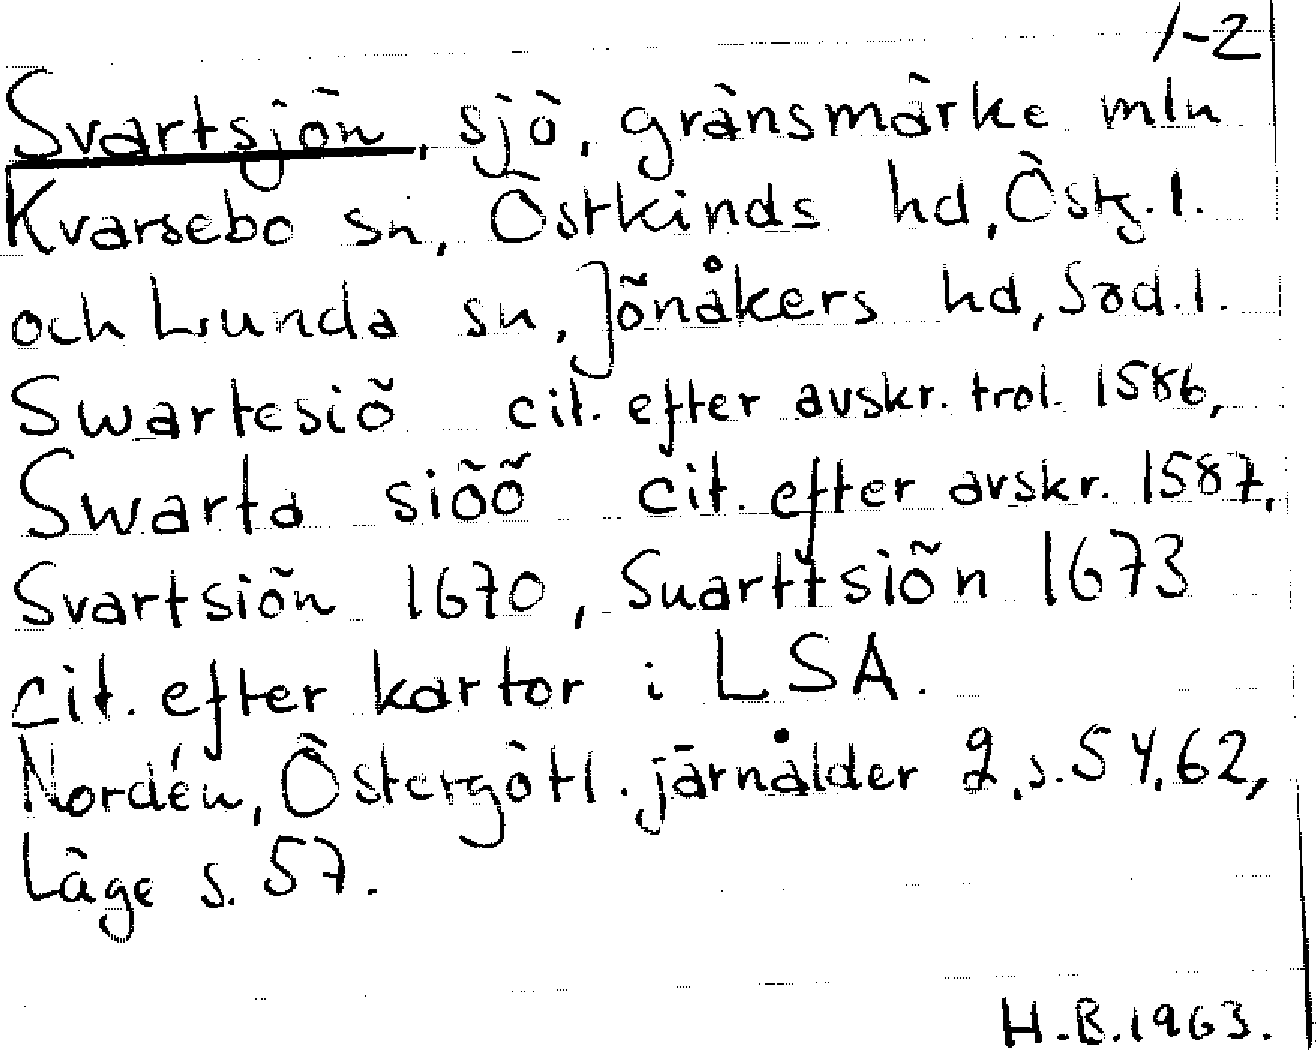 1-2
Svartsjön, sjö, gränsmärke mln
Kvarsebo sn, Östkinds hd, Östg.l.
och Lunda sn, Jönåkers hd, Söd.l.
Swartesiö cit. efter avskr. trol. 1586,
Swarta siöö cit. efter avskr. 1587,
Svartsiön 1670, Suarttsiön 1673
cit. efter kartor i LSA.
Nordén, Östergötl. järnålder 2, s. 54, 62,
Läge s. 57.
H.B. 1963.